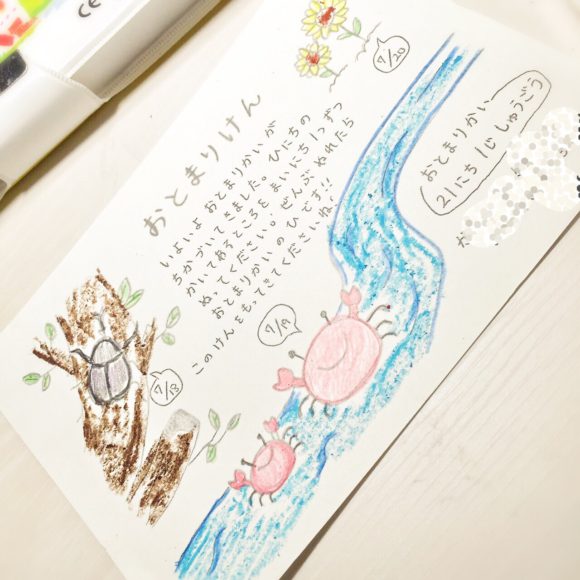 おとまりけん
いよいよ おとまりかいが
ちかづいてきました。ひにちの
かいてあるところを まいにち 1つずつ
ぬってください。ぜんぶ ぬれたら
おとまりかいの ひです!!
このけんをもってきてくださいね!
7/20
7/19
7/18
おとまりかい
21にち 1じ しゅうごう
CE